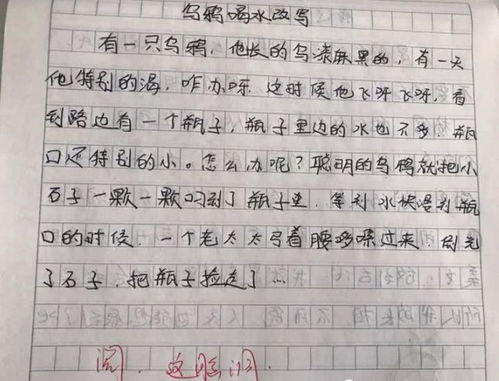 乌鸦喝水改写
有一只乌鸦，他长的乌漆麻黑的，有一天
他特别的渴，咋办呀，这时候他飞呀飞呀，看
到路边有一个瓶子，瓶子里边的水也不多，瓶
口还特别的小。怎么办呢？聪明的乌鸦就把小
石子一颗一颗叼到了瓶子里，等到水快漫到瓶
口的时候，一个老太太弓着腰哆嗦过来，倒光
了石子，把瓶子捡走了…
这脑洞.